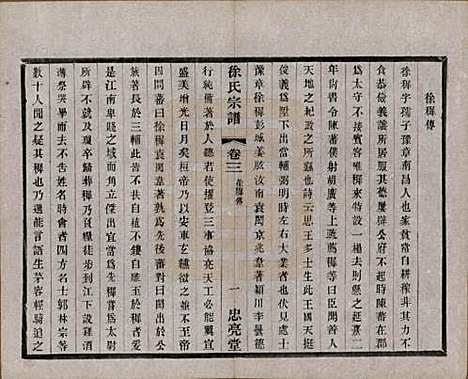 徐穉傳
徐穉字孺子豫章南昌人也家貧常自耕稼非其力不
食恭儉義讓所居服其德屢辟公府不起時陳蕃在郡
為太守不接賓客唯穉來特設一榻去則懸之延熹二
年尚書令陳蕃僕射胡廣等上疏薦穉等曰臣聞善人
天地之紀政之所由也詩云思王多士生此王國天挺
俊義為聖世出當輔弼明時左右大業者也伏見處士
豫章徐穉彭城姜肱汝南袁閎京兆韋著潁川李曇德
行純備著於人聽若使擢登三事協亮天工必能翼宣
盛美增光日月矣桓帝乃以安車玄纁徵之並不至帝
因問蕃曰徐穉袁閎韋著誰為先後蕃對曰閎生出公
族聞道漸訓著長於三輔所謂不扶自直不鏤自雕至於穉者
是江南卑賤之域而角立傑出宜當為先穉嘗為太尉
所辟不就及瓊卒歸葬穉乃負糧徒步到江下設雞酒
薄祭哭畢而去不告姓名時會者四方名士郭林宗等
數十人聞之疑其穉也乃選能言語生茅容輕騎追之
徐氏宗譜
卷三
徐穉傳
一
忠亮堂